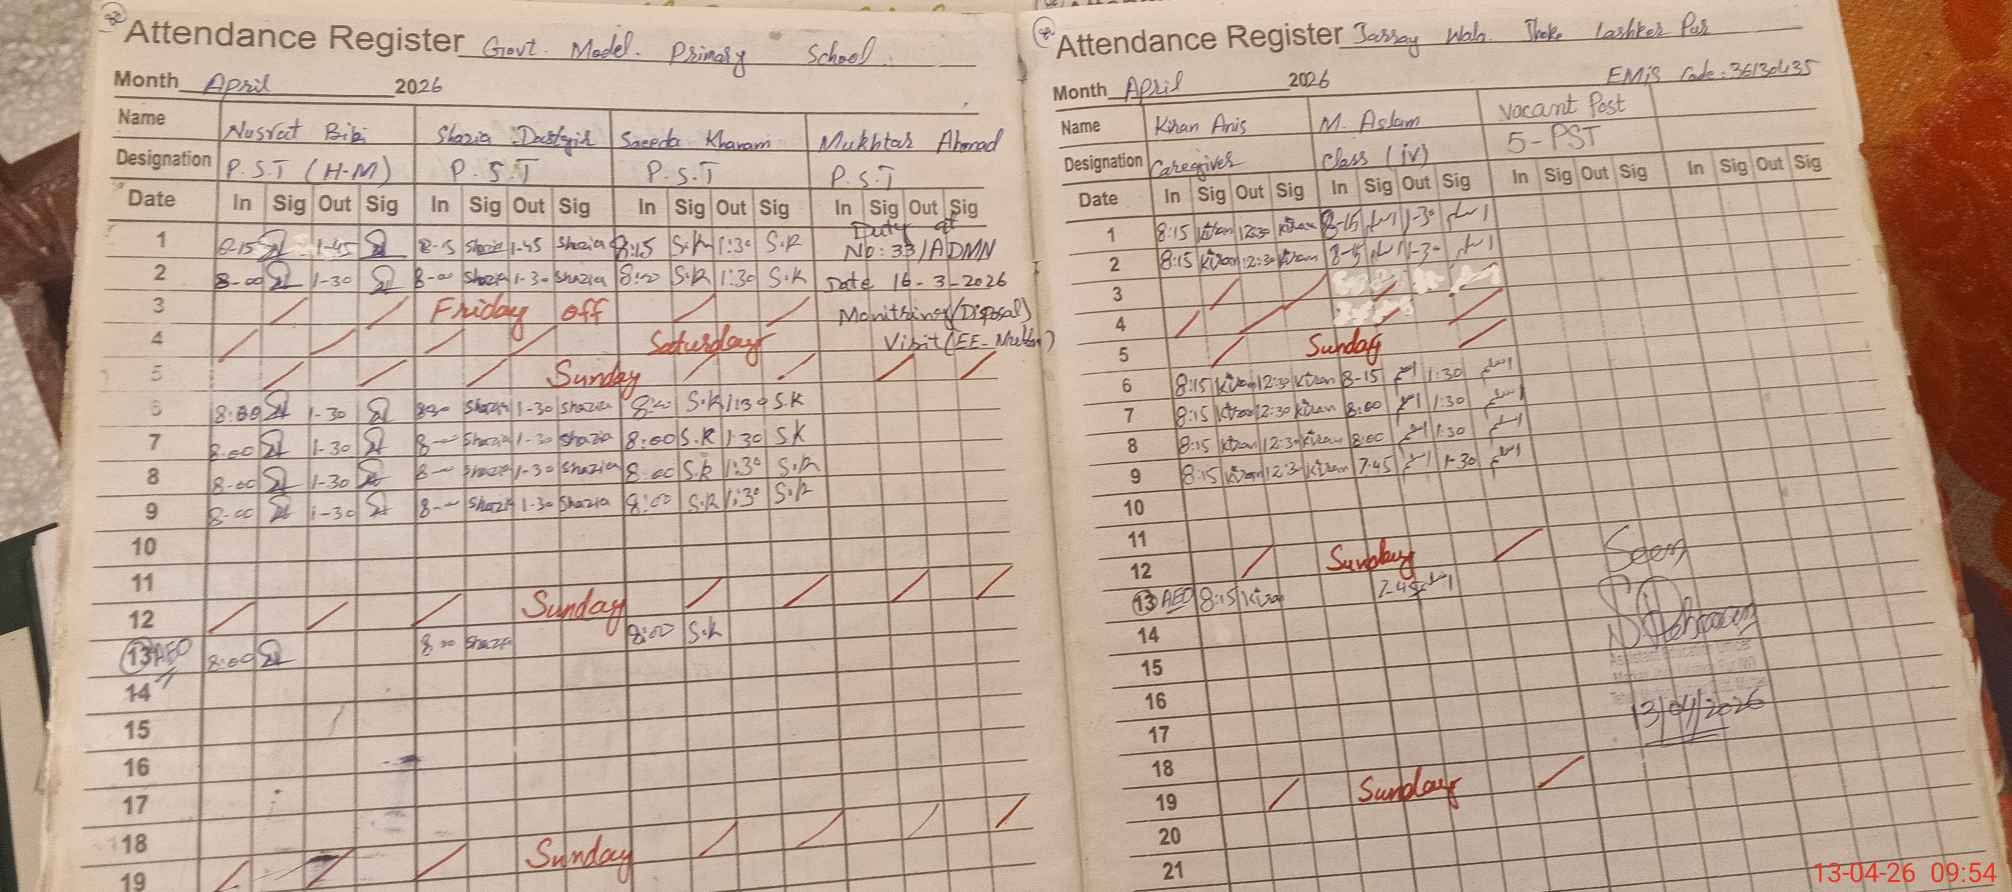 32
Attendance Register Govt. Model. Primary School.
Month April 2026
Name Nusrat Bibi Shazia Dastgir Saeeda Khanam Mukhtar Ahmad
Designation P.S.T (H-M) P.S.T P.S.T P.S.T
Date In Sig Out Sig In Sig Out Sig In Sig Out Sig In Sig Out Sig
Duty at
1 8-15 1-45 8-15 Shazia 1-45 Shazia 8:15 S.K 1:30 S.K No: 33/ADMN
2 8-00 1-30 8-00 Shazia 1-30 Shazia 8:00 S.K 1:30 S.K Date 16-3-2026
3 Friday off Monitring/(Disposal)
4 Saturday Visit (EE-
5 Sunday
6 8:00 1-30 Shazia 1-30 Shazia S.K 1:30 S.K
7 8-00 1-30 8- Shazia 1-30 Shazia 8:00 S.K 1:30 S.K
8 8-00 1-30 8- Shazia 1-30 Shazia 8:00 S.K 1:30 S.K
9 8-00 1-30 8- Shazia 1-30 Shazia 8:00 S.K 1:30 S.K
10
11
12 Sunday
13 AEO 8:00 8-00 Shazia 8:00 S.K
14
15
16
17
18
19 Sunday
Attendance Register Jarray Wala Lashker Pur
Month April 2026 EMIS Code: 36130435
Name Kiran Anis M. Aslam Vacant Post
Designation Caregiver Class (iv) 5-PST
Date In Sig Out Sig In Sig Out Sig In Sig Out Sig In Sig Out Sig
1 8:15 Kiran 12:30 Kiran 8-15 اسلم 1-30 اسلم
2 8:15 Kiran 12:30 Kiran 8-15 اسلم 1-30 اسلم
3
4
5 Sunday
6 8:15 Kiran 12:30 Kiran 8-15 اسلم 1:30 اسلم
7 8:15 Kiran 12:30 Kiran 8:00 اسلم 1:30 اسلم
8 8:15 Kiran 12:30 Kiran 8:00 اسلم 1:30 اسلم
9 8:15 Kiran 12:30 Kiran 7:45 اسلم 1-30 اسلم
10
11
12 Sunday
13 AEO 8:15 Kiran 7-45 اسلم
Seen
14
15
Assistant Education Officer
16
13/04/2026
17
18
19 Sunday
20
21
13-04-26 09:54